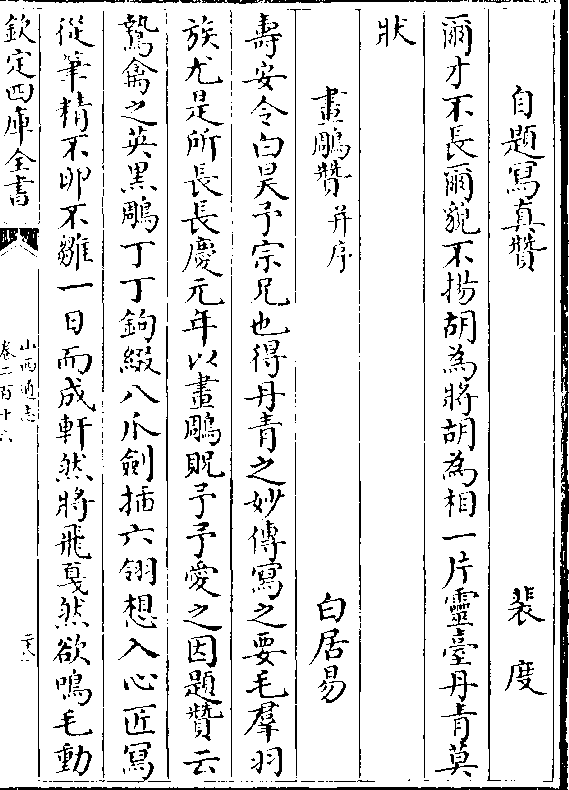 自題寫真贊 裴度
爾才不長爾貌不揚胡為將胡為相一片靈臺丹青莫
狀
畫鵰贊并序 白居易
壽安令白昊予宗兄也得丹青之妙傳寫之要毛羣羽
族尤是所長長慶元年以畫鵰貺予予愛之因題贊云
鷙禽之英黑鵰丁丁鉤綴八爪劍插六翎想入心匠寫
從筆精不卵不雛一日而成軒然將飛戛然欲鳴毛動
欽定四庫全書
山西通志
卷二百十六